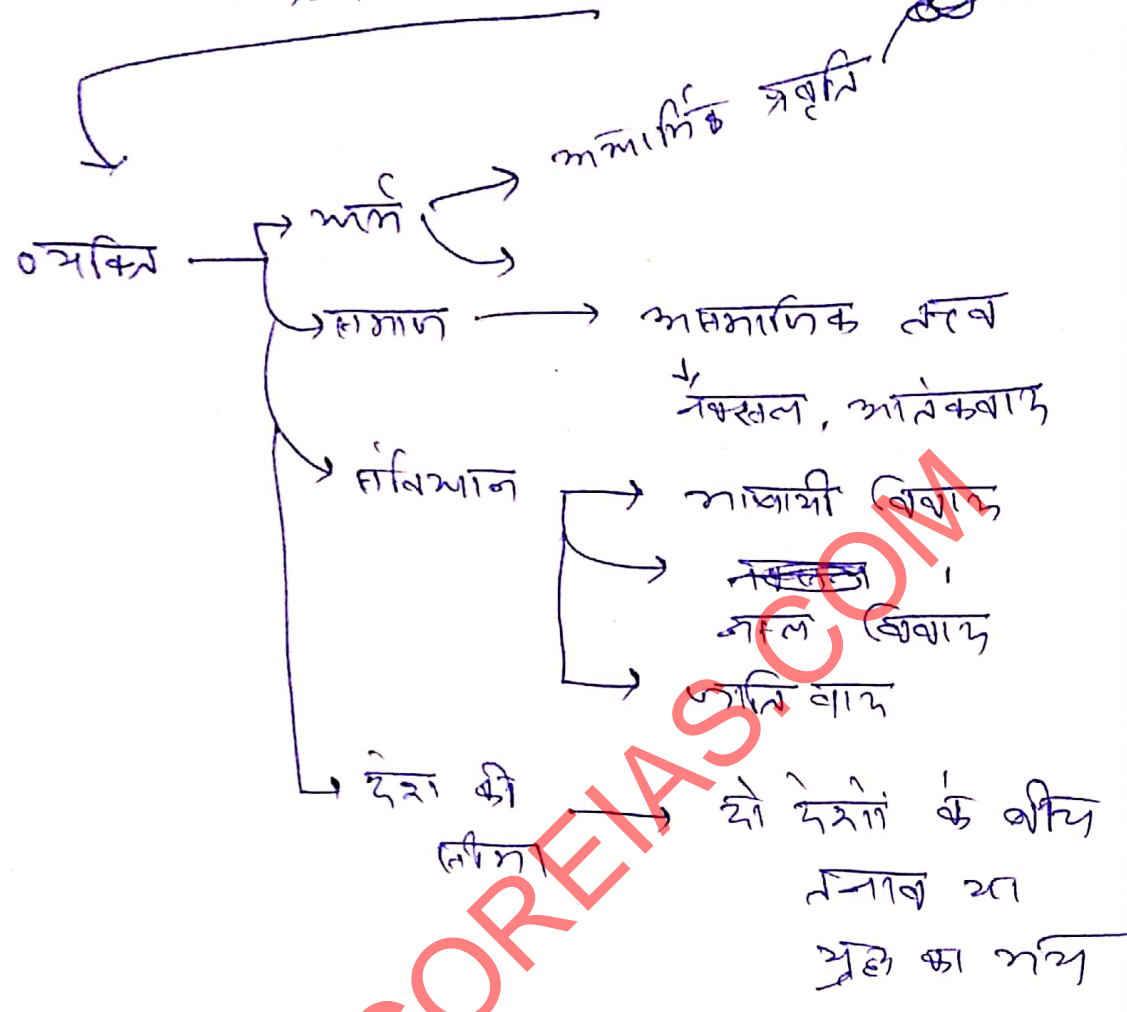 अधार्मिक प्रवृति
धर्म
व्यक्ति
समाज
असमाजिक तत्व
नक्सल, आतंकवाद
संविधान
भाषायी विवाद
जल विवाद
जातिवाद
देश की
सीमा
दो देशों के बीच
तनाव या
युद्ध का भय
COREIAS.COM